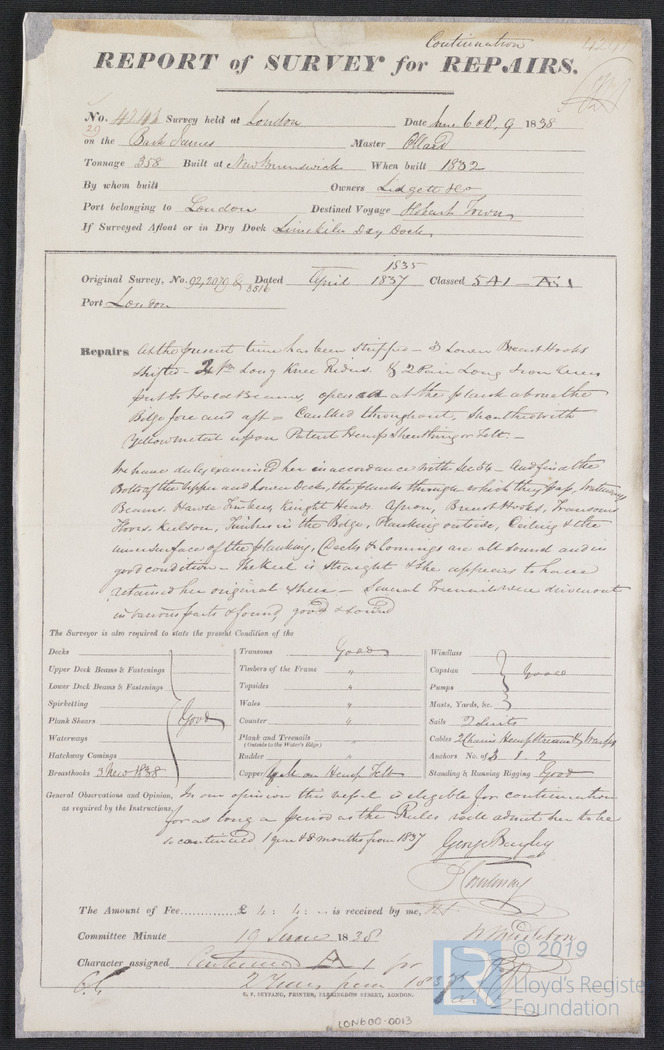 Continuation
REPORT of SURVEY for REPAIRS.
No. 4241 Survey held at London Date June 6 & 9 1838
29
on the Bark James Master
Tonnage 358 Built at New Brunswick When built 1832
By whom built Owners Lidgett & Co
Port belonging to London Destined Voyage Hobart Town
If Surveyed Afloat or in Dry Dock Limekiln Dry Dock
1835
Original Survey, No. Dated April 1837 Classed 5 A1
Port London
Repairs At the present time has been stripped - 3 Lower Breast Hooks
shifted - Long Knee Riders & 2 Pair Long Iron Knees
put to Hold Beams, at the plank above the
Bilge fore and aft = Caulked throughout, Sheathed with
Yellow metal upon Patent Hemp Sheathing or Felt. -
We have duly examined her in accordance with Sec 54 - And find the
Bolts of the Upper and Lower Decks, the planks through which they pass,
Beams, Hawse Timbers, Knight Heads, Apron, Breast Hooks, Transoms
Floors, Keelson, Timbers in the Bilge, Planking outside, Ceiling & the
inner surface of the planking, Decks & Comings are all sound and in
good condition - The Keel is straight & she appears to have
retained her original sheer - Several Treenails were driven out
in various parts & found good & sound
The Surveyor is also required to state the present Condition of the
Decks
Upper Deck Beams & Fastenings
Lower Deck Beams & Fastenings
Spirketting
Plank Shears Good
Waterways
Hatchway Comings
Breasthooks 3 New 1838
Transoms Good
Timbers of the Frame "
Topsides "
Wales "
Counter "
Plank and Treenails "
(Outside to the Water's Edge)
Rudder "
Copper on Hemp Felt
Windlass
Capstan Good
Pumps
Masts, Yards, &c.
Sails 2 Suits
Cables 2 Chain Hemp Stream & Warps
Anchors No. of 3 1 2
Standing & Running Rigging Good
General Observations and Opinion, In our opinion this vessel is eligible for continuation
as required by the Instructions, for as long a period as the Rules will admit her to be
so continued 1 year & 8 months from 1837
George Bayley
The Amount of Fee............ £ 4 : 4 : .. is received by me,
Committee Minute 19 June 1838
Character assigned Continued A 1 for
2 Years from 1837
S. F. SEYFANG, PRINTER, FARRINGDON STREET, LONDON.
© 2019
Lloyd's Register
Foundation
LON600-0013